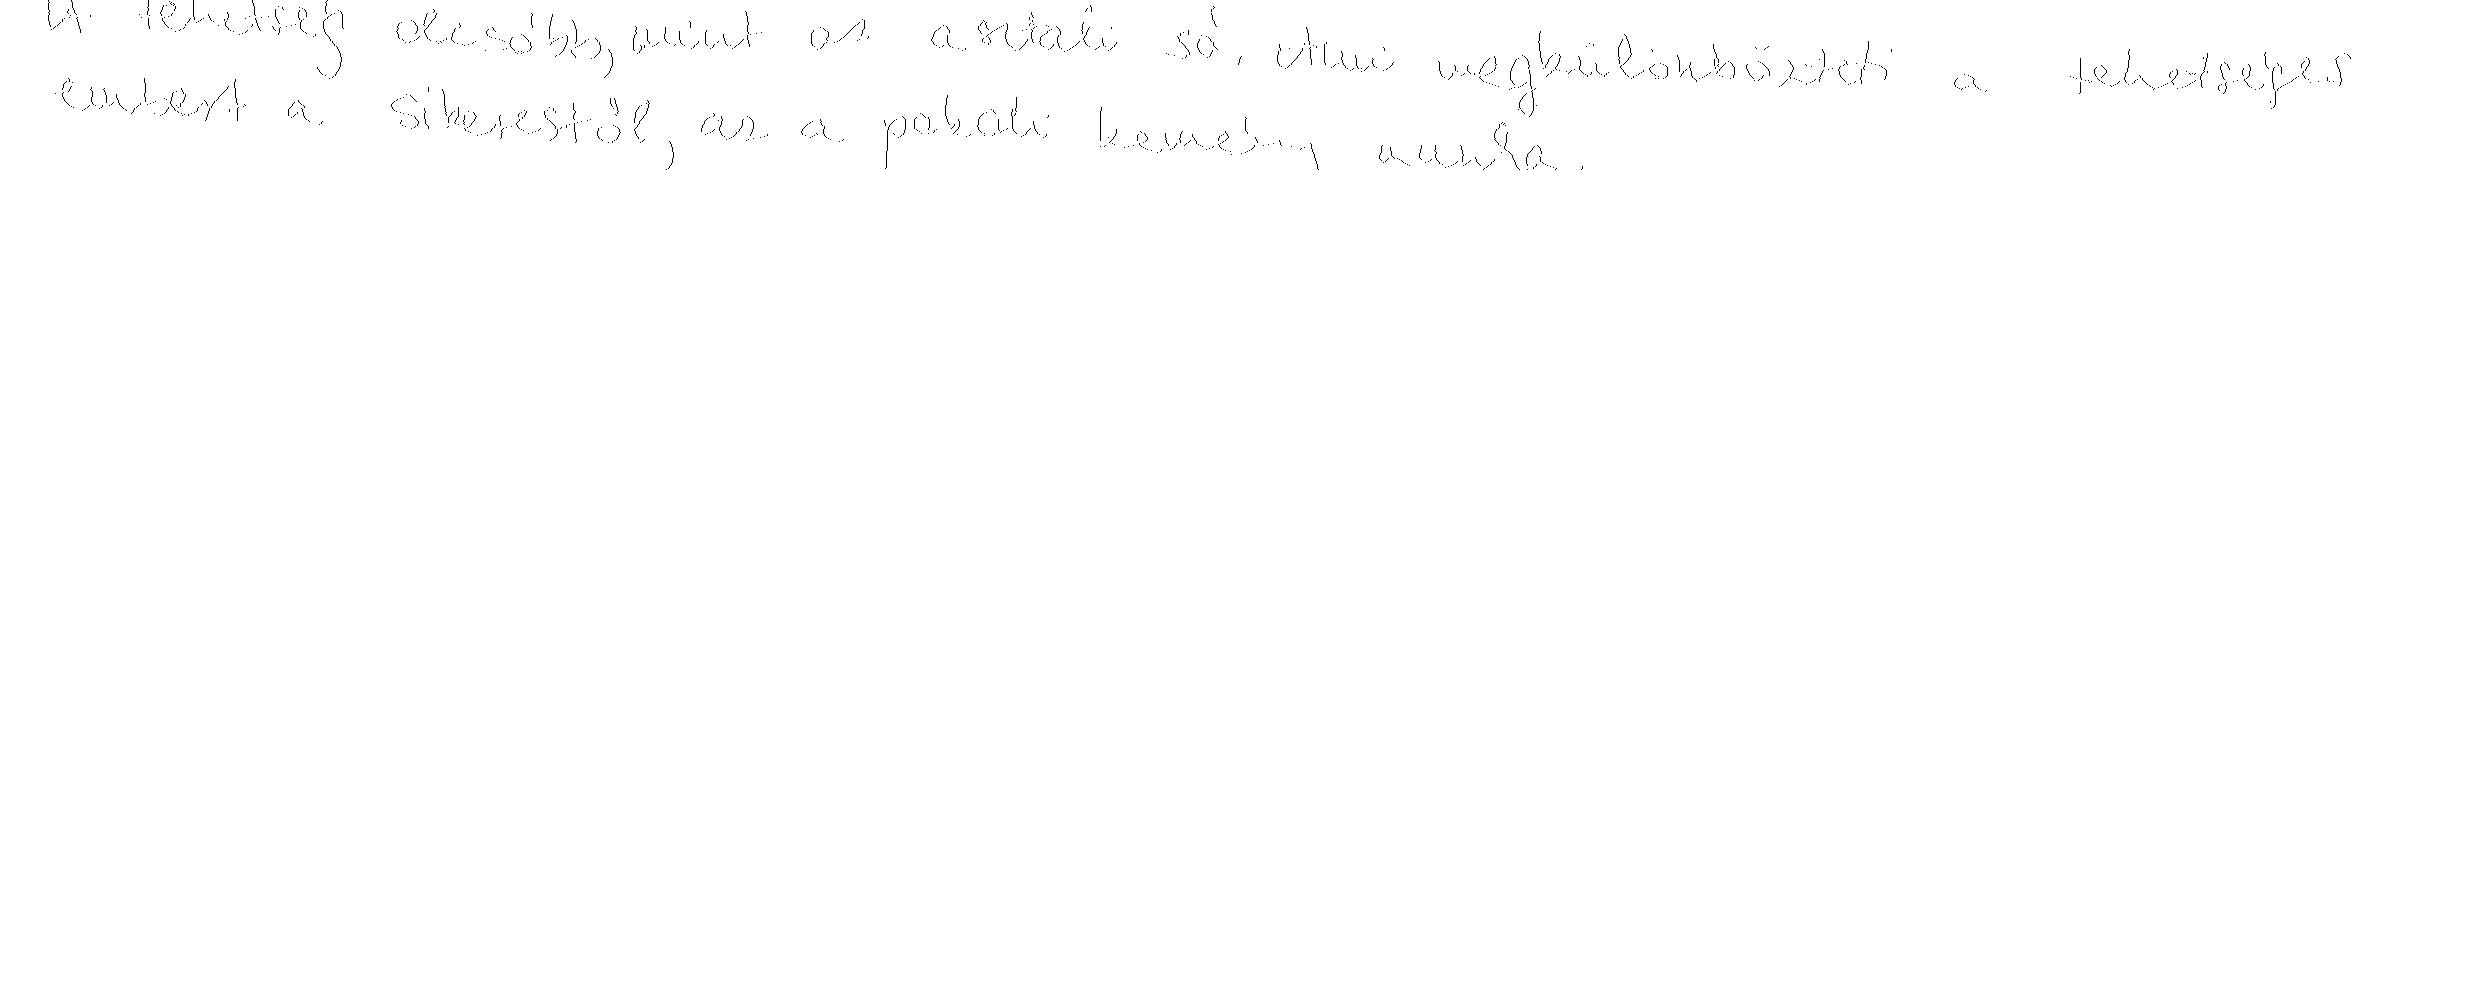 A tehetség olcsóbb, mint az asztali só. Ami megkülönbözteti a tehetséges
embert a sikerestől, az a pokoli kemény munka.